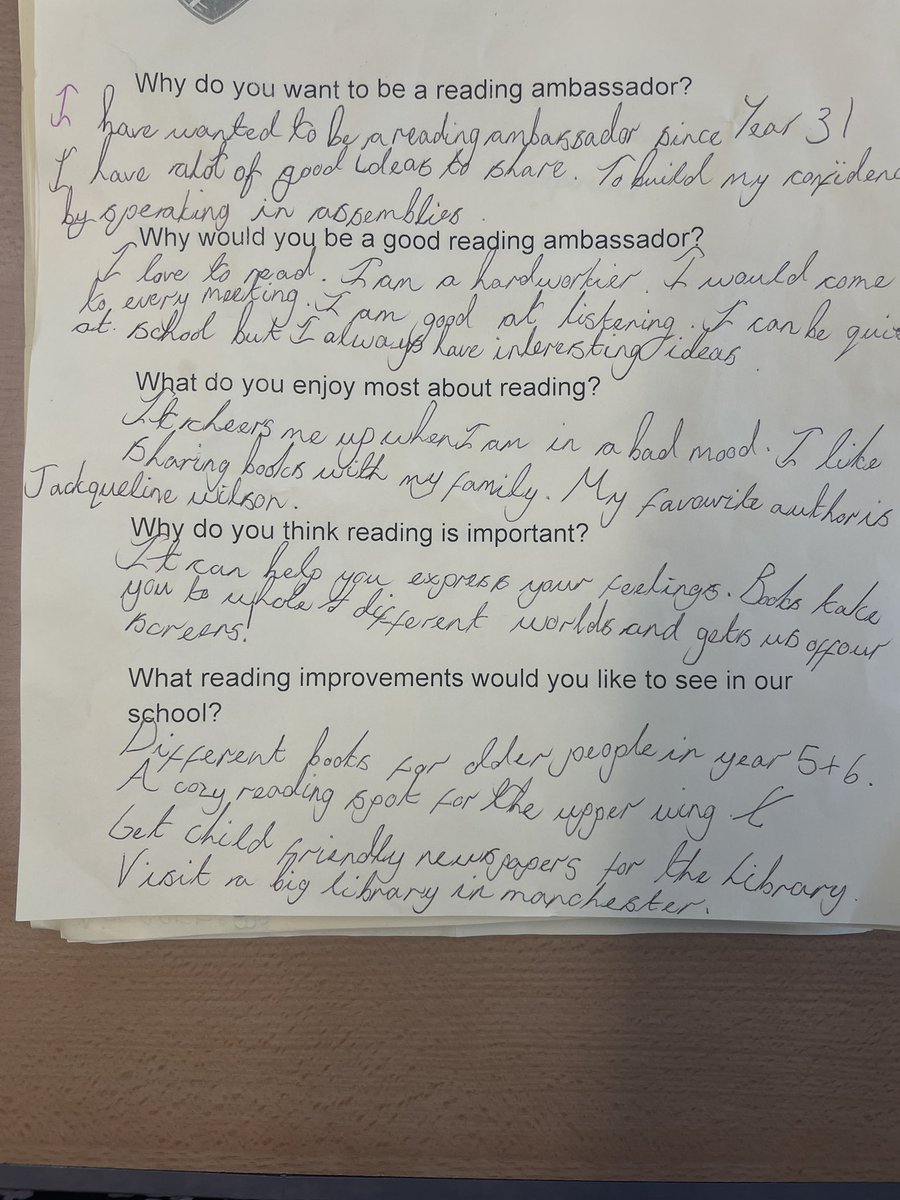 Why do you want to be a reading ambassador?
I have wanted to be a reading ambassador since Year 3!
I have alot of good ideas to share. To build my confidenc
by speaking in assemblies.
Why would you be a good reading ambassador?
I love to read. I am a hardworkier. I would come
to every meeting. I am good at listening. I can be quie
at school but I always have interesting ideas
What do you enjoy most about reading?
It cheers me up when I am in a bad mood. I like
sharing books with my family. My favourite author is
Jackqueline wilson.
Why do you think reading is important?
It can help you express your feelings. Books take
you to whole different worlds and gets us off our
screens!
What reading improvements would you like to see in our
school?
Different books for older people in year 5+6.
A cozy reading spot for the upper wing
Get child friendly newspapers for the library.
Visit a big library in manchester.